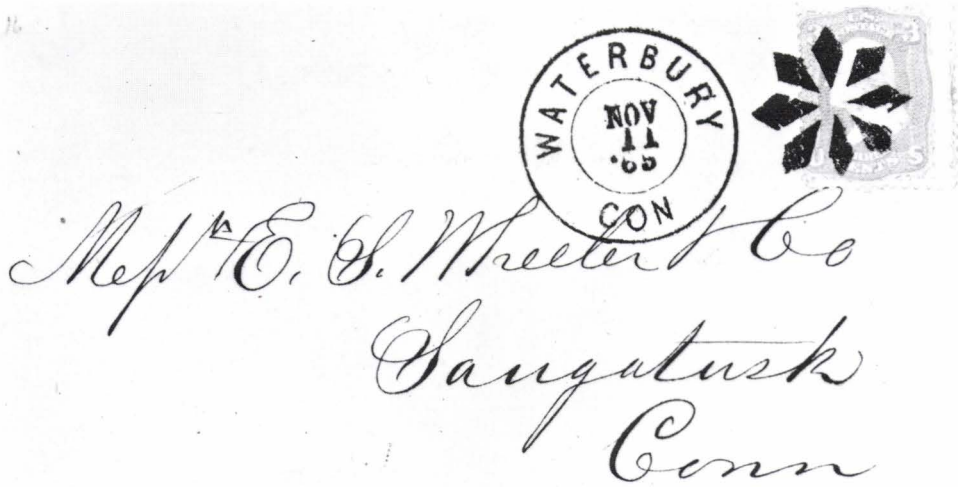 WATERBURY
NOV
11
'65
CON
Messrs E. S. Wheeler & Co
Saugatusk
Conn